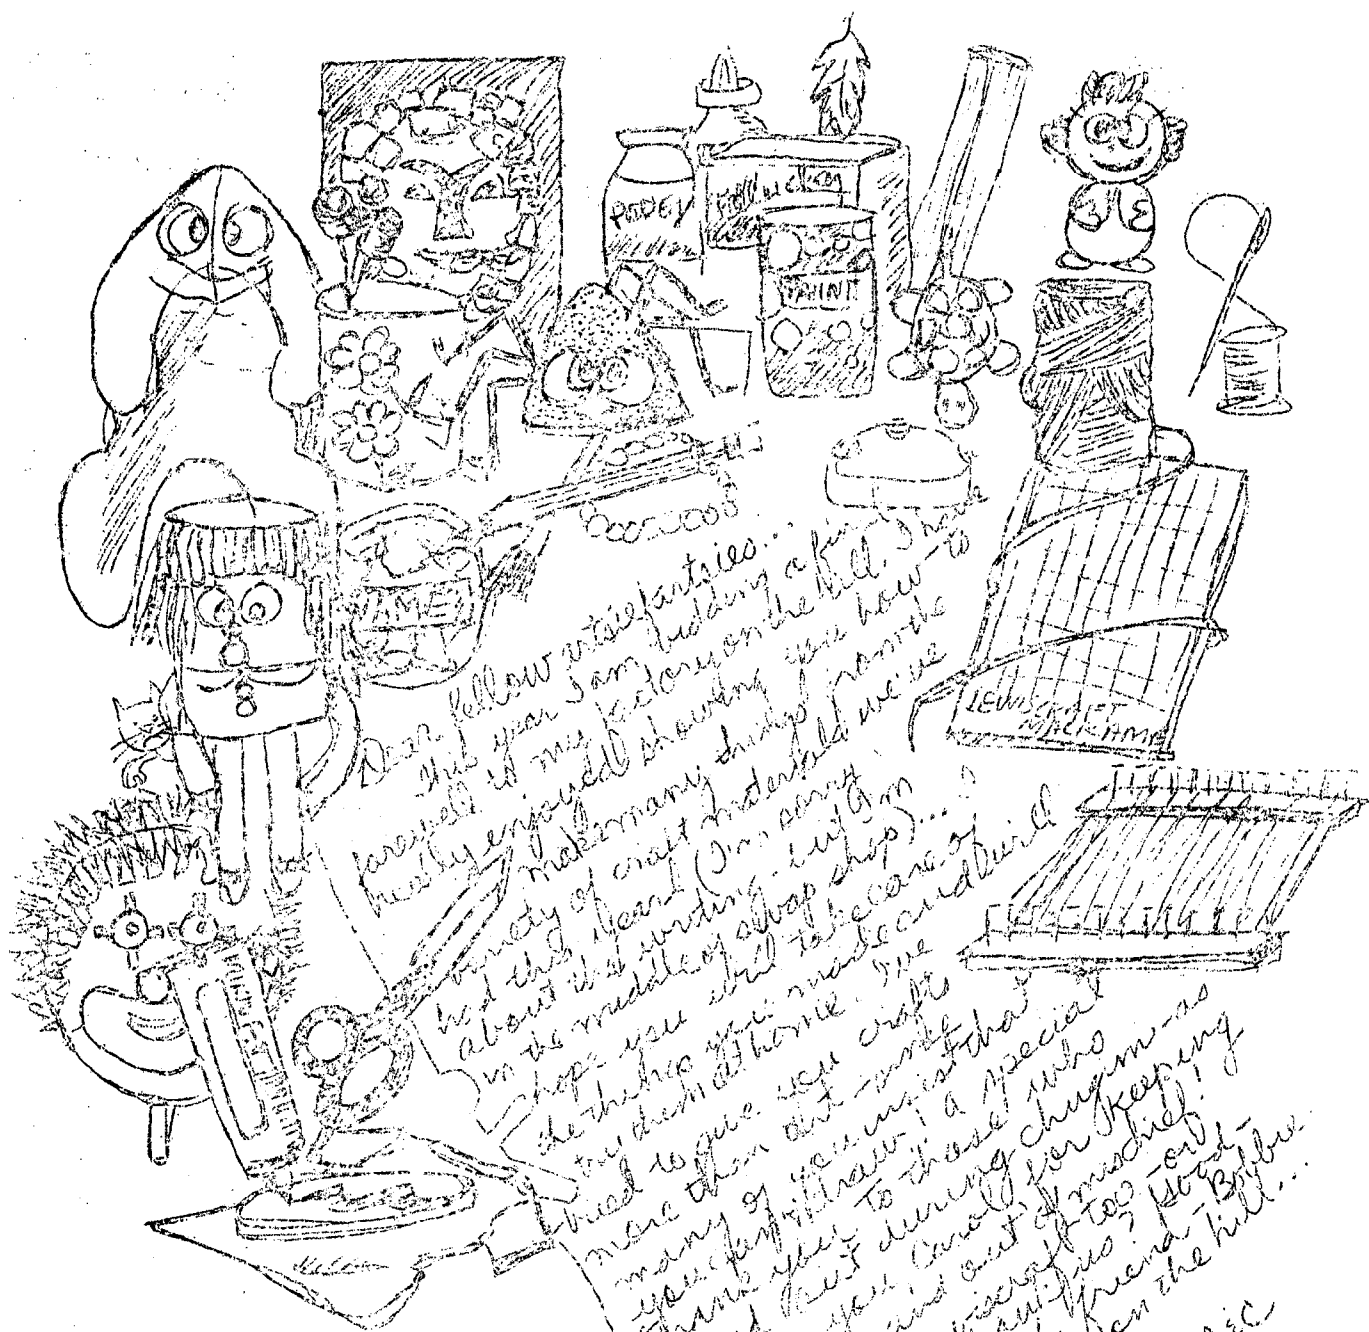 PODGY
PAINT
LEWISCRAFT
MACRAME
Dear fellow artsiefartsies...
This year I am bidding a fine
farewell to my factory on the hill. I have
really enjoyed showing you how to
make many things from the
variety of craft materials we've
had this year! (I'm sorry
about this writing but I'm
in the middle of swap shop)...I
hope you will take care of
the things you made and will
try them at home. I've
tried to give you crafts
more than art - most
many of you insist that
you can't draw! a special
thank you to those who
out during chugim - as
you Carol for keeping
and out of mischief!
too - or
us? good-
friend - Bobbie
on the hill...